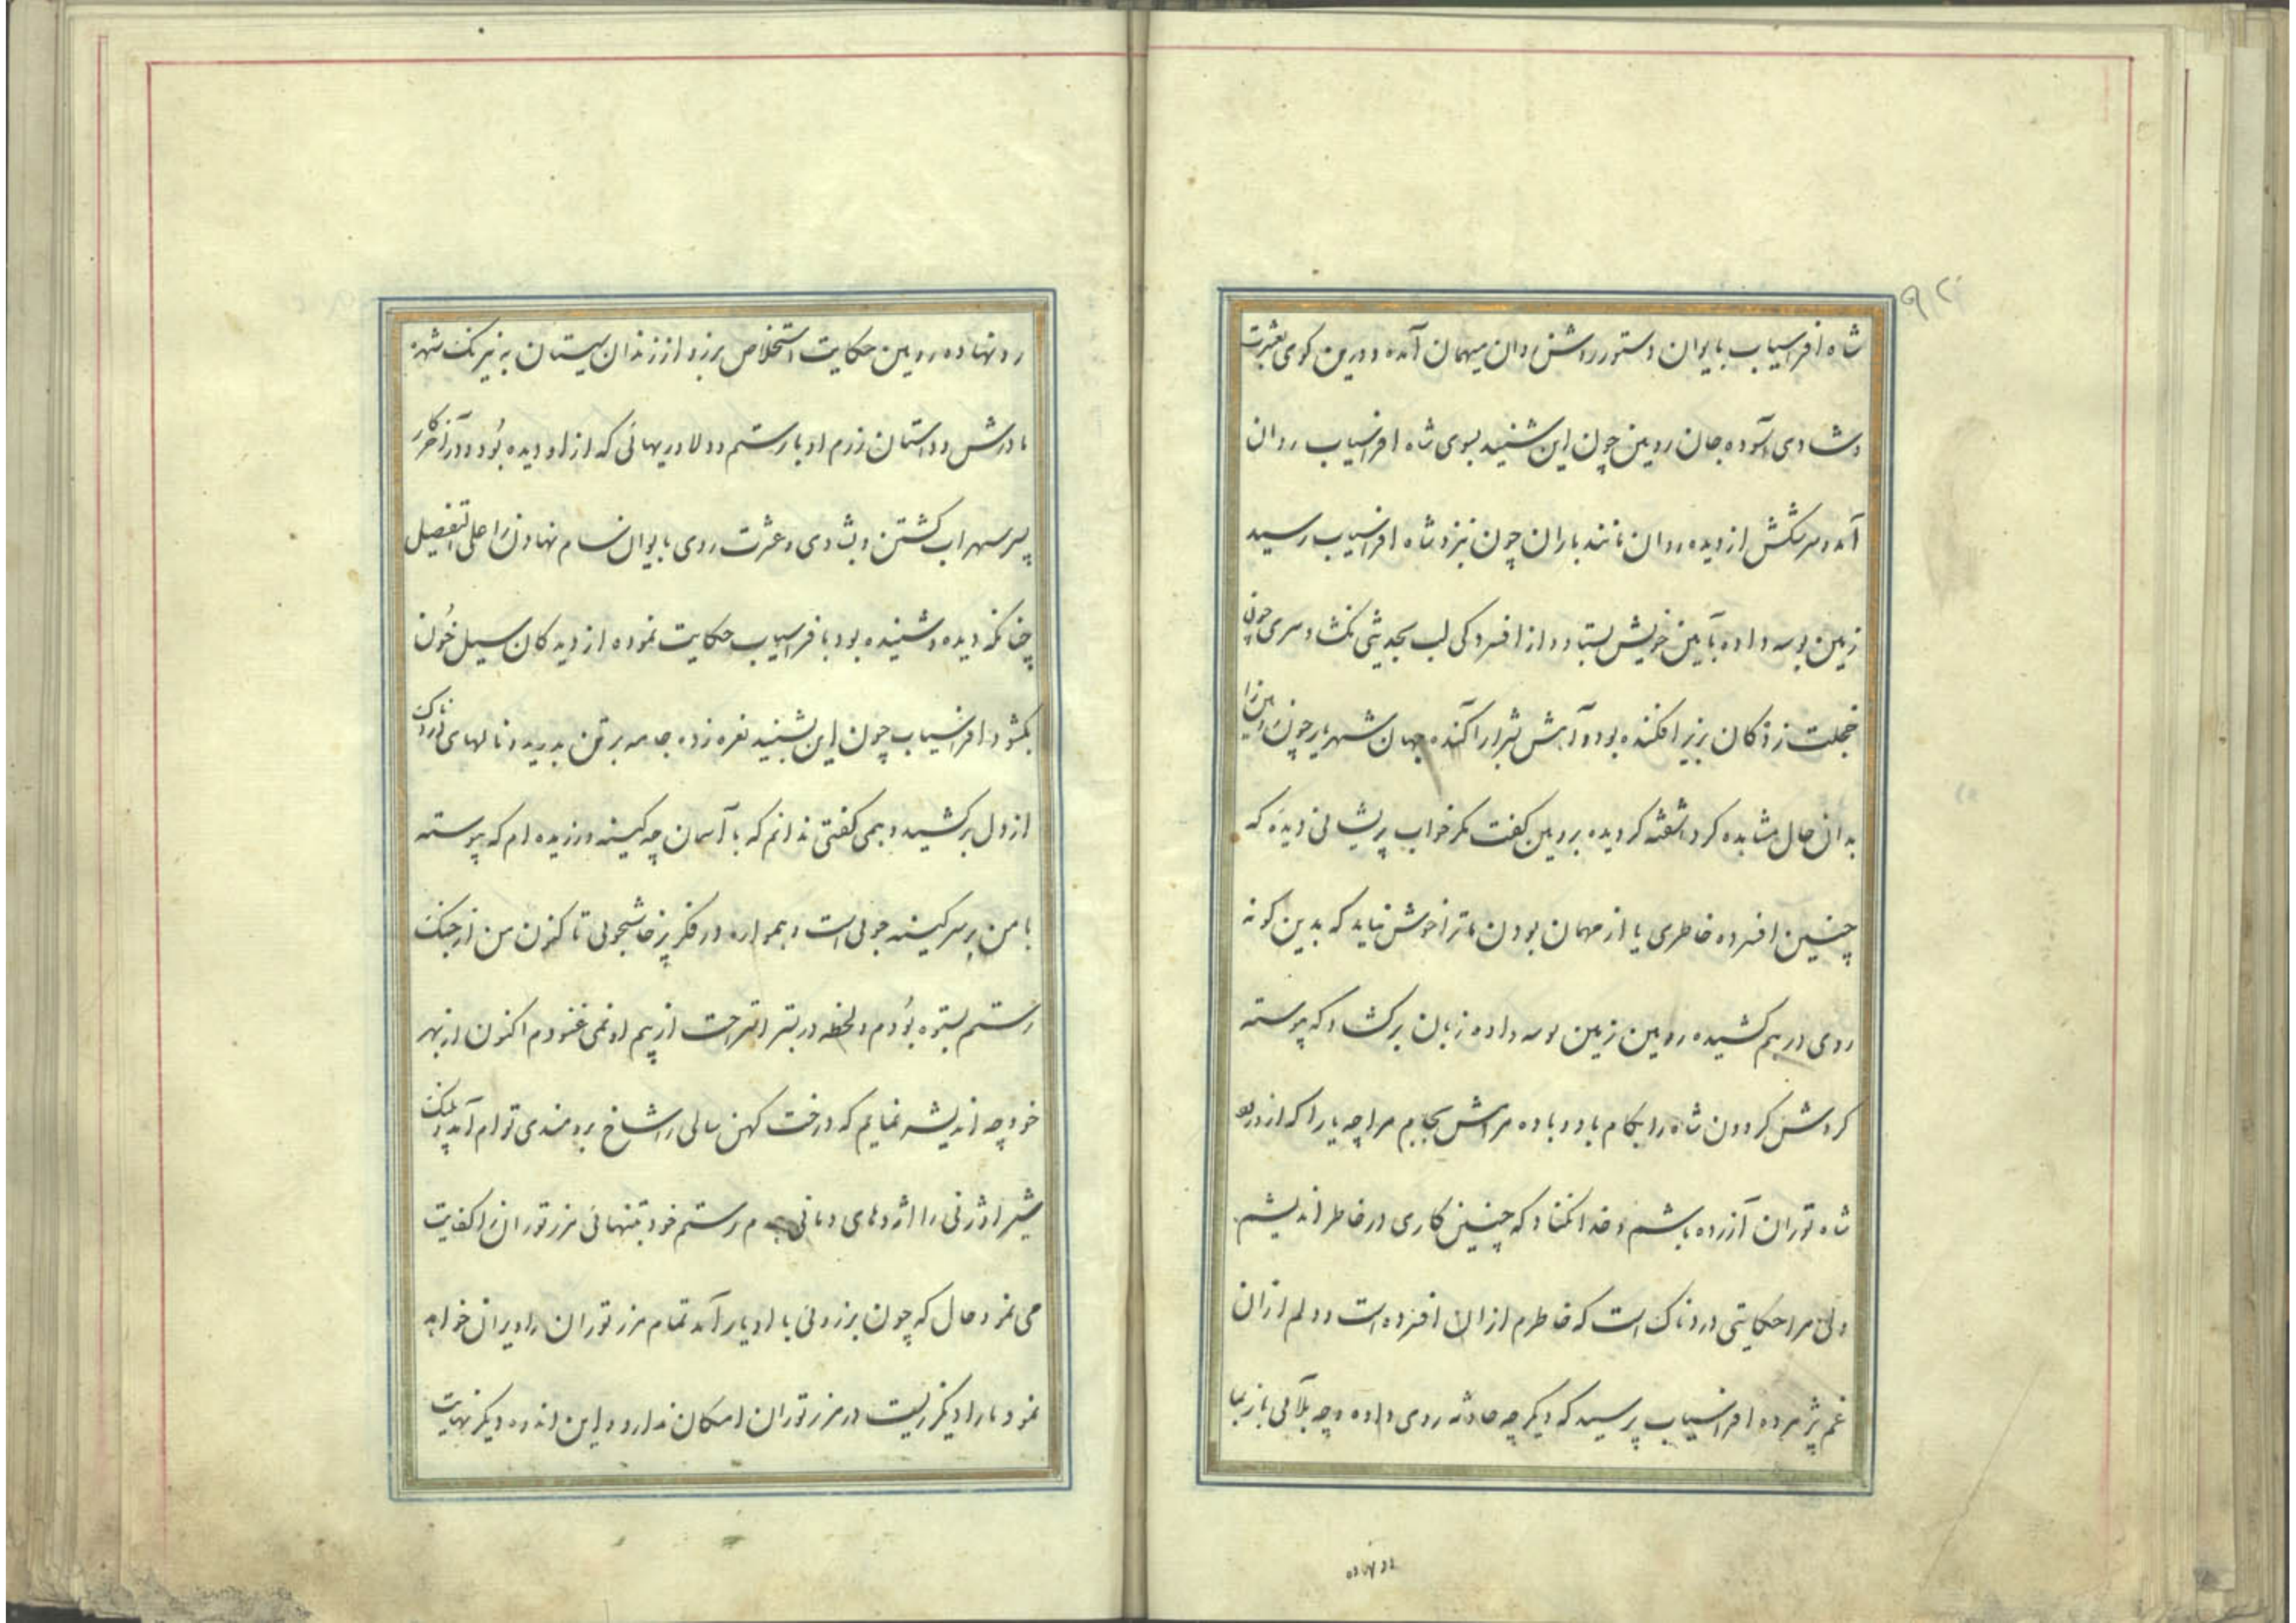 ۹۲
شاه افراسیاب بایوان دستور روشن روان میهمان آمده و درین کوی بعشرت
و شادی آسوده جان رویین چون این شنید بسوی شاه افراسیاب روان
آمد و سرشکش از دیده روان مانند باران چون نزد شاه افراسیاب رسید
زمین بوسه داده بآیین خویش بستاد و از افسردکی لب بحدیثی نکشاد سری چون
خجلت زدکان بزیر افکنده بود و آهش شرار آکنده جهان شهریار چون رویین را
بدان حال مشاهده کرد آشفته کردیده برویین کفت مکر خواب پریشانی دیدۀ که
چنین افسرده خاطری یا از مهمان بودن ما ترا خوش نیاید که بدین کونه
روی درهم کشیده رویین زمین بوسه داده زبان برکشاد که پیوسته
کردش کردون شاه را بکام باد و باده مرادش بجام مرا چه یارا که از ورود
شاه توران آزرده باشم و خدا نکناد که چنین کاری در خاطر اندیشم
ولی مرا حکایتی دردناک است که خاطرم از ان افسرده است و دلم از ان
غم پژمرده افراسیاب پرسید که دیکر چه حادثه روی داده و چه بلائی باز بما
رو نهاده رویین حکایت استخلاص برزو از زندان سیستان به نیرنک شهرو
مادرش و داستان رزم او با رستم و دلاوریهائی که از او دیده بود و در آخر کار
پسر سهراب کشتن و بشادی و عشرت روی بایوان سام نهادن را علی التفصیل
چنانکه دیده و شنیده بود بافراسیاب حکایت نموده از دیدکان سیل خون
بکشود افراسیاب چون این بشنید نعره زده جامه بر تن بدرید و نالهای دردناک
از دل برکشید و همی کفتی ندانم که با آسمان چه کینه ورزیده ام که پیوسته
با من بر سر کینه جوئی است و همواره در فکر پرخاشجوئی تا کنون من از جنک
رستم بستوه بودم و لحظه در بستر استراحت از بیم او نمی غنودم اکنون از بهر
خود چه اندیشه نمایم که درخت کهن سالی را شاخ برومندی توام آمد و پلنک
شیر اوژنی را اژدهای دمانی بهم رستم خود بتنهائی مرز توران را کفایت
می نمود حال که چون برزوئی با او یار آمد تمام مرز توران را ویران خواهد
نمود ما را دیکر زیست در مرز توران امکان ندارد و این اندوه دیکر نهایت